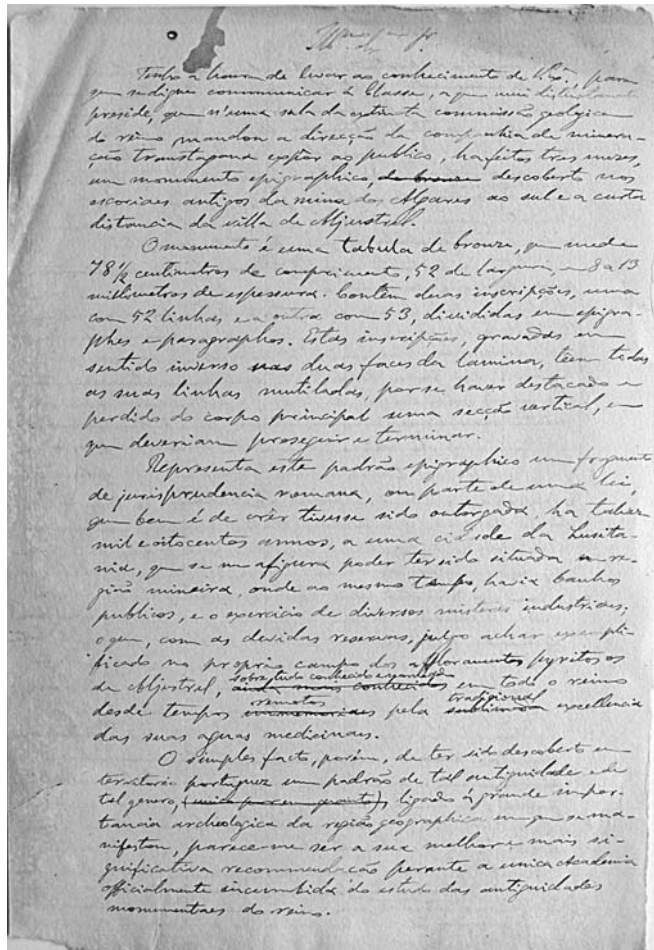 Tenho a honra de levar ao conhecimento de V. Ex.ª, para
que se digne communicar á Classe, a que mui distinctamente
preside, que n'uma sala da extincta commissão geologica
do reino mandou a direcção da companhia de minera-
ção transtagana expôr ao publico, ha feitos tres mezes,
um monumento epigraphico, de bronze descoberto nos
escoriaes antigos da mina dos Algares ao sul e a curta
distancia da villa de Aljustrel.
O monumento é uma tabula de bronze, que mede
78 1/2 centimetros de comprimento, 52 de largura, e 8 a 13
millimetros de espessura. Contém duas inscripções, uma
com 52 linhas e a outra com 53, divididas em epigra-
phes e paragraphos. Estas inscripções, gravadas em
sentido inverso nas duas faces da lamina, teem todas
as suas linhas mutiladas, por se haver destacado e
perdido do corpo principal uma secção vertical, em
que deveriam proseguir e terminar.
Representa este padrão epigraphico um fragmento
de jurisprudencia romana, ou parte de uma lei,
que bem é de crêr tivesse sido outorgada, ha talvez
mil e oitocentos annos, a uma cidade da Lusita-
nia, que se me afigura poder ter sido situada em re-
gião mineira, onde ao mesmo tempo, havia banhos
publicos, e o exercicio de diversos misteres industriaes,
o que, com as devidas reservas, julgo achar exempli-
ficado no proprio campo dos affloramentos pyritosos
de Aljustrel, sobretudo conhecido ainda mais conhecidos em todo o reino
desde tempos remotos immemoriaes pela tradicional excellencia
das suas aguas medicinaes.
O simples facto, porém, de ter sido descoberto em
territorio portuguez um padrão de tal antiguidade e de
tal genero, ligado á grande impor-
tancia archeologica da região geographica em que se ma-
nifestou, parece-me ser a sua melhor e mais si-
gnificativa recommendação perante a unica Academia
officialmente incumbida do estudo das antiguidades
monumentaes do reino.